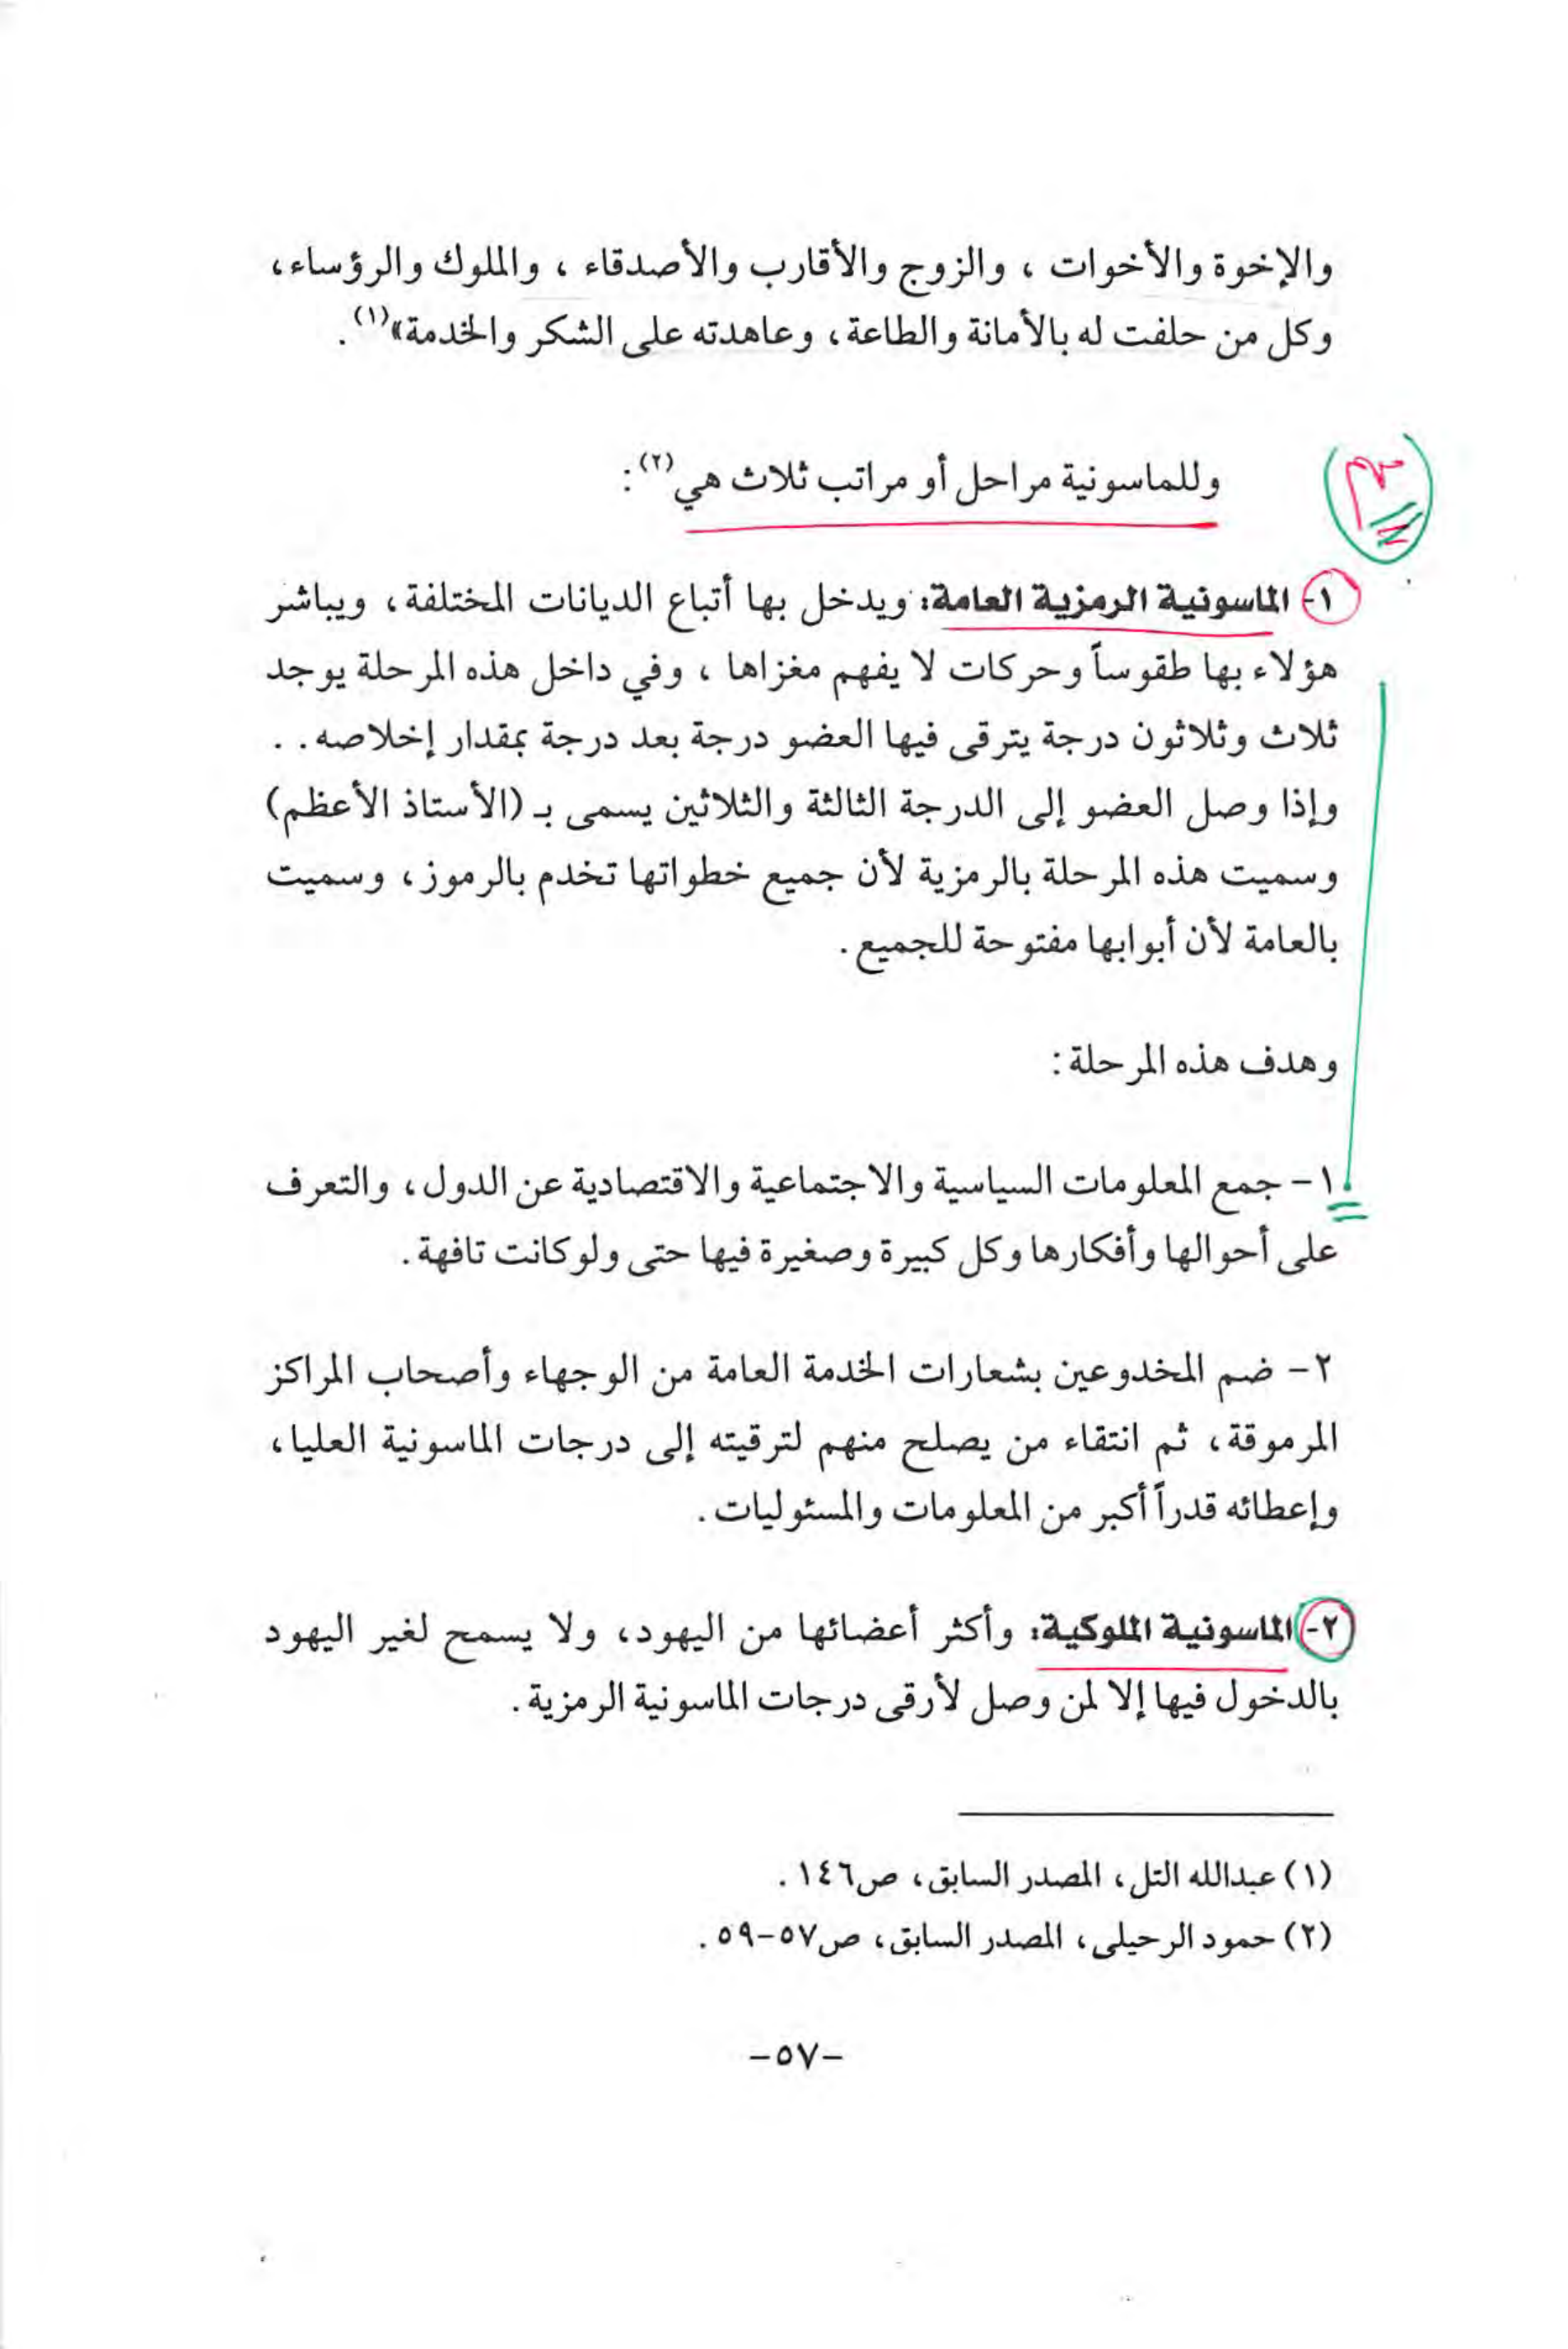 والإخوة والأخوات ، والزوج والأقارب والأصدقاء ، والملوك والرؤساء،
وكل من حلفت له بالأمانة والطاعة، وعاهدته على الشكر والخدمة»(١) .
وللماسونية مراحل أو مراتب ثلاث هي(٢):
٣
١- الماسونية الرمزية العامة: ويدخل بها أتباع الديانات المختلفة، ويباشر
هؤلاء بها طقوساً وحركات لا يفهم مغزاها ، وفي داخل هذه المرحلة يوجد
ثلاث وثلاثون درجة يترقى فيها العضو درجة بعد درجة بمقدار إخلاصه . .
وإذا وصل العضو إلى الدرجة الثالثة والثلاثين يسمى بـ (الأستاذ الأعظم)
وسميت هذه المرحلة بالرمزية لأن جميع خطواتها تخدم بالرموز، وسميت
بالعامة لأن أبوابها مفتوحة للجميع .
وهدف هذه المرحلة :
١- جمع المعلومات السياسية والاجتماعية والاقتصادية عن الدول، والتعرف
على أحوالها وأفكارها وكل كبيرة وصغيرة فيها حتى ولو كانت تافهة .
٢- ضم المخدوعين بشعارات الخدمة العامة من الوجهاء وأصحاب المراكز
المرموقة، ثم انتقاء من يصلح منهم لترقيته إلى درجات الماسونية العليا،
وإعطائه قدراً أكبر من المعلومات والمسئوليات .
٢- الماسونية الملوكية: وأكثر أعضائها من اليهود، ولا يسمح لغير اليهود
بالدخول فيها إلا لمن وصل لأرقى درجات الماسونية الرمزية .
(١) عبدالله التل، المصدر السابق، ص١٤٦ .
(٢) حمود الرحيلى، المصدر السابق، ص٥٧-٥٩ .
-٥٧-